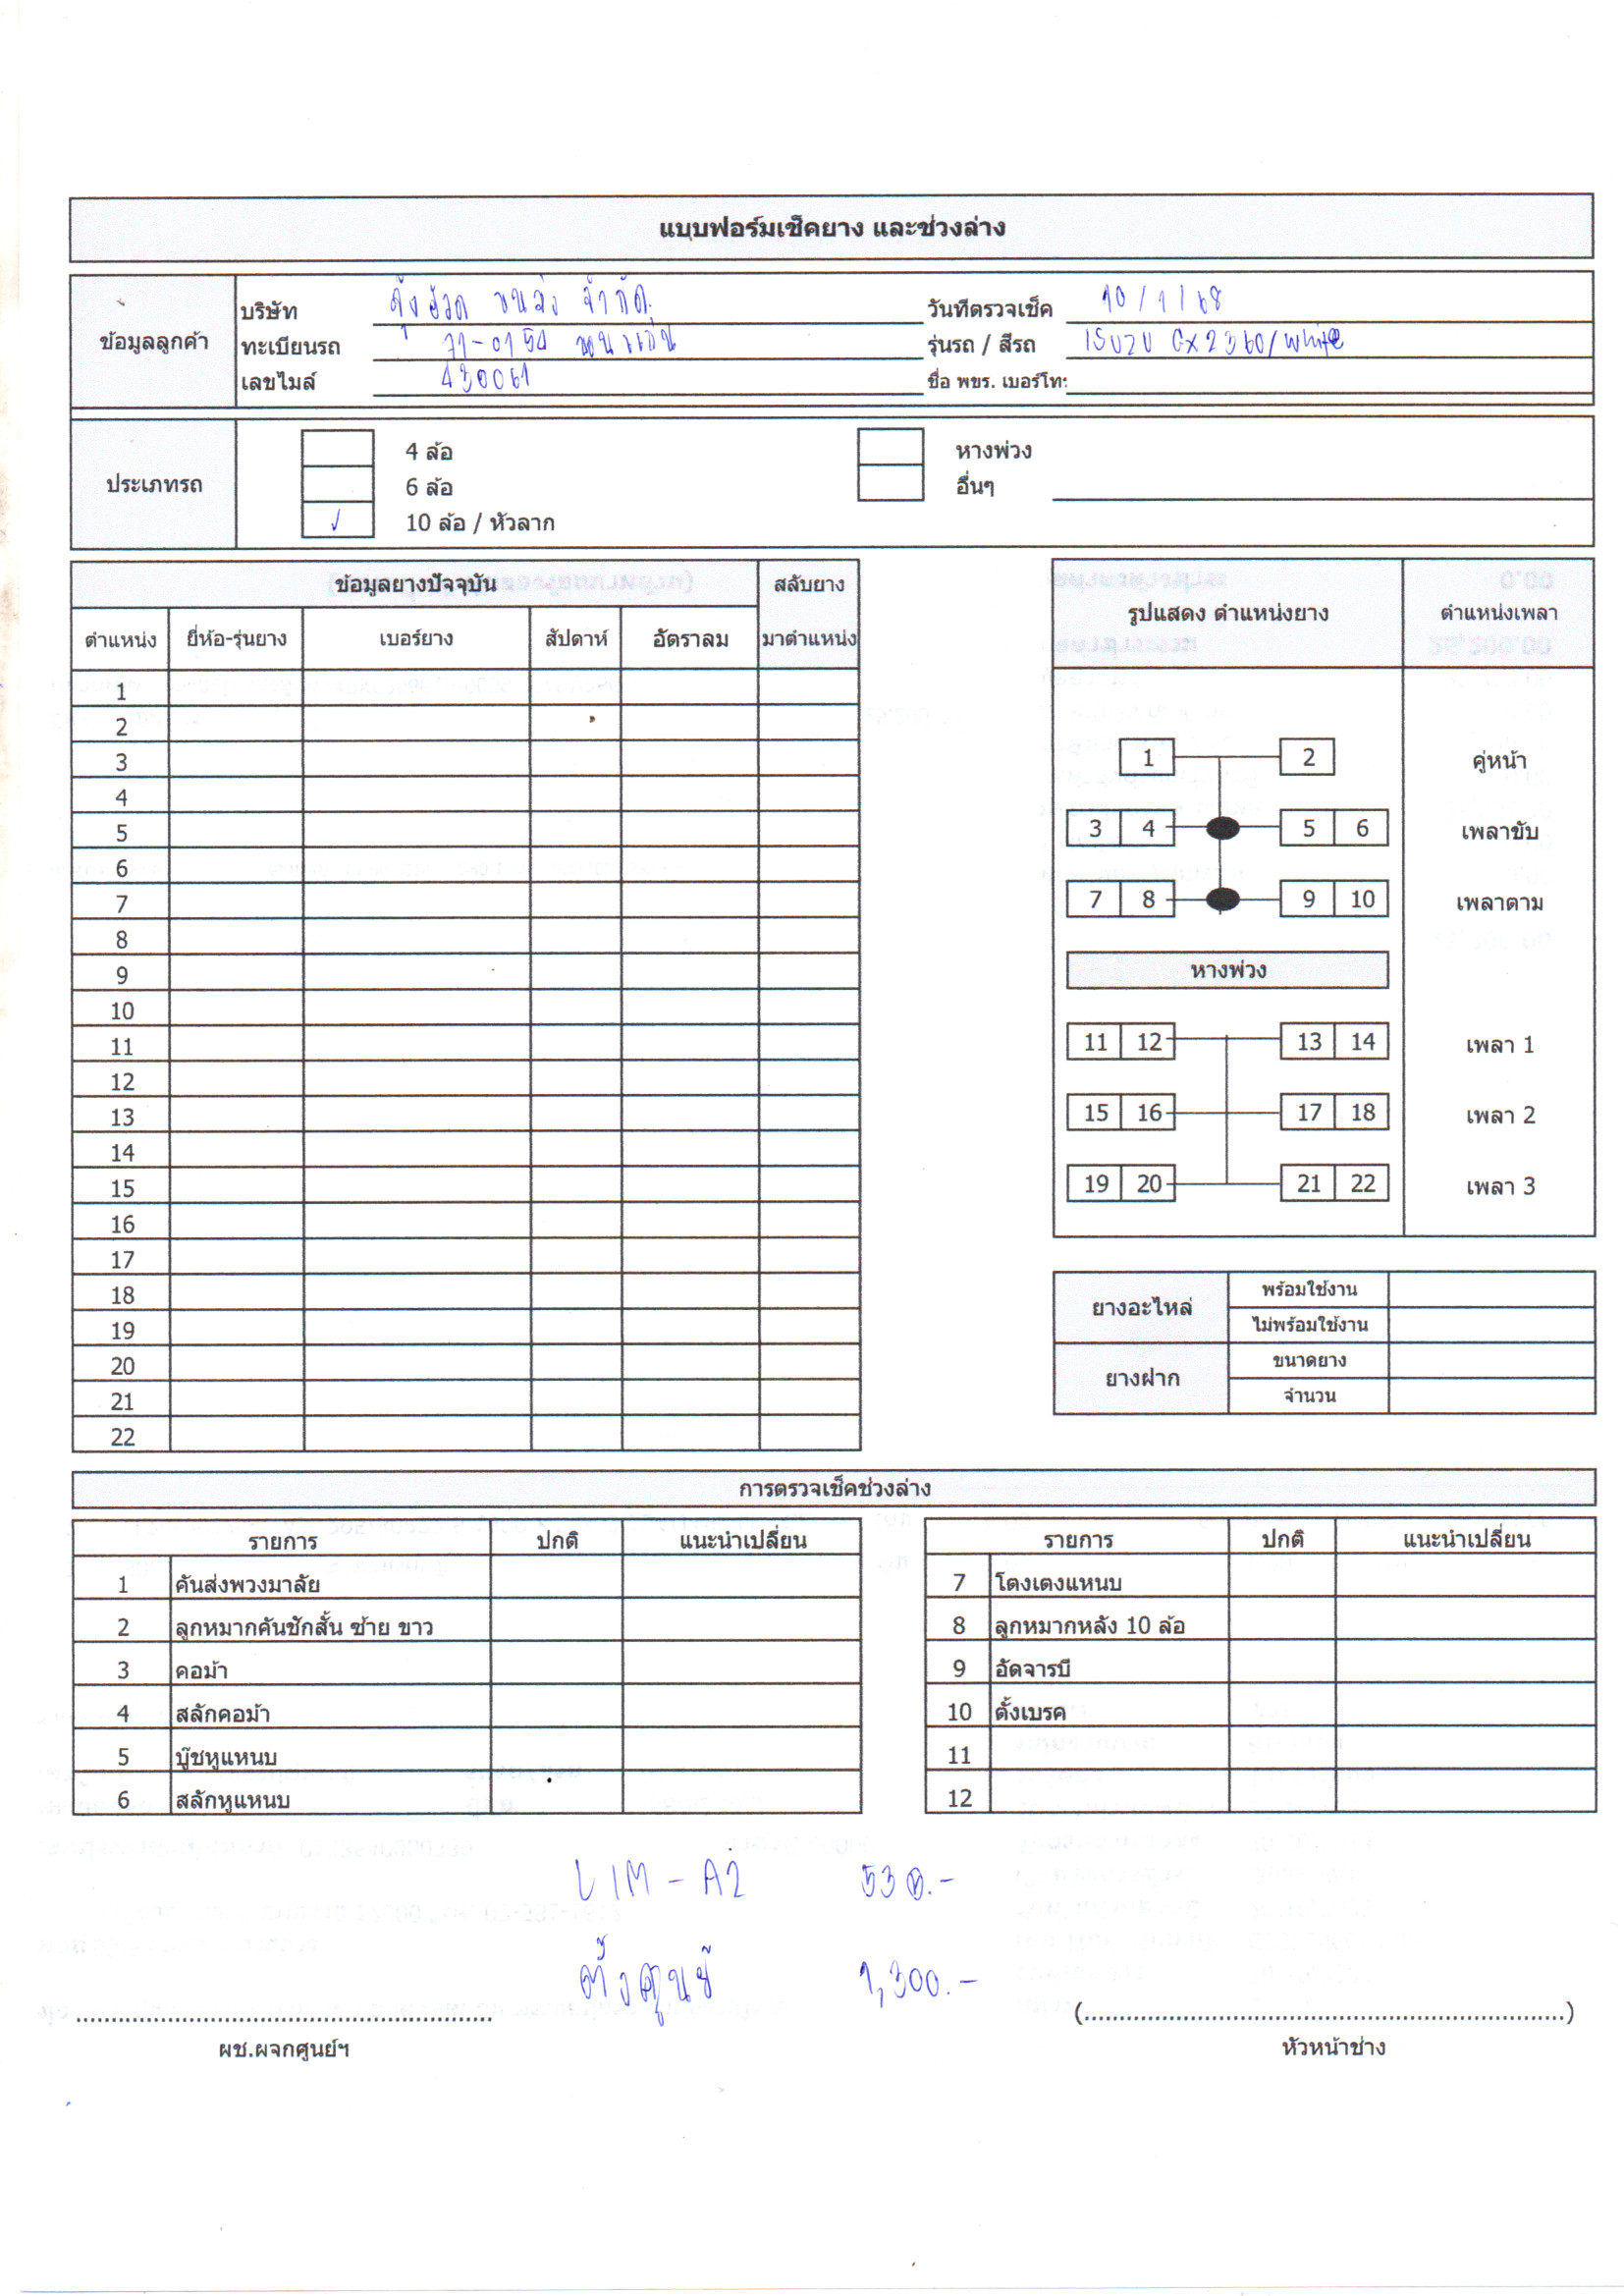 แบบฟอร์มเช็คยาง และช่วงล่าง
ข้อมูลลูกค้า
บริษัท ขนส่ง จำกัด. วันที่ตรวจเช็ค 10/1/68
ทะเบียนรถ 71-0154 ขอนแก่น รุ่นรถ / สีรถ ISUZU GX2360/White
เลขไมล์ 430061 ชื่อ พขร. เบอร์โทร
ประเภทรถ
4 ล้อ หางพ่วง
6 ล้อ อื่นๆ
✓ 10 ล้อ / หัวลาก
ข้อมูลยางปัจจุบัน สลับยาง
ตำแหน่ง ยี่ห้อ-รุ่นยาง เบอร์ยาง สัปดาห์ อัตราลม มาตำแหน่ง
1
2
3
4
5
6
7
8
9
10
11
12
13
14
15
16
17
18
19
20
21
22
รูปแสดง ตำแหน่งยาง ตำแหน่งเพลา
1 2 คู่หน้า
3 4 5 6 เพลาขับ
7 8 9 10 เพลาตาม
หางพ่วง
11 12 13 14 เพลา 1
15 16 17 18 เพลา 2
19 20 21 22 เพลา 3
ยางอะไหล่ พร้อมใช้งาน
ไม่พร้อมใช้งาน
ยางฝาก ขนาดยาง
จำนวน
การตรวจเช็คช่วงล่าง
รายการ ปกติ แนะนำเปลี่ยน
1 คันส่งพวงมาลัย
2 ลูกหมากคันชักสั้น ซ้าย ขาว
3 คอม้า
4 สลักคอม้า
5 บู๊ชหูแหนบ
6 สลักหูแหนบ
รายการ ปกติ แนะนำเปลี่ยน
7 โตงเตงแหนบ
8 ลูกหมากหลัง 10 ล้อ
9 อัดจารบี
10 ตั้งเบรค
11
12
UIM-A2 530.-
ตั้งศูนย์ 1,300.-
(....................)
ผช.ผจกศูนย์ฯ หัวหน้าช่าง